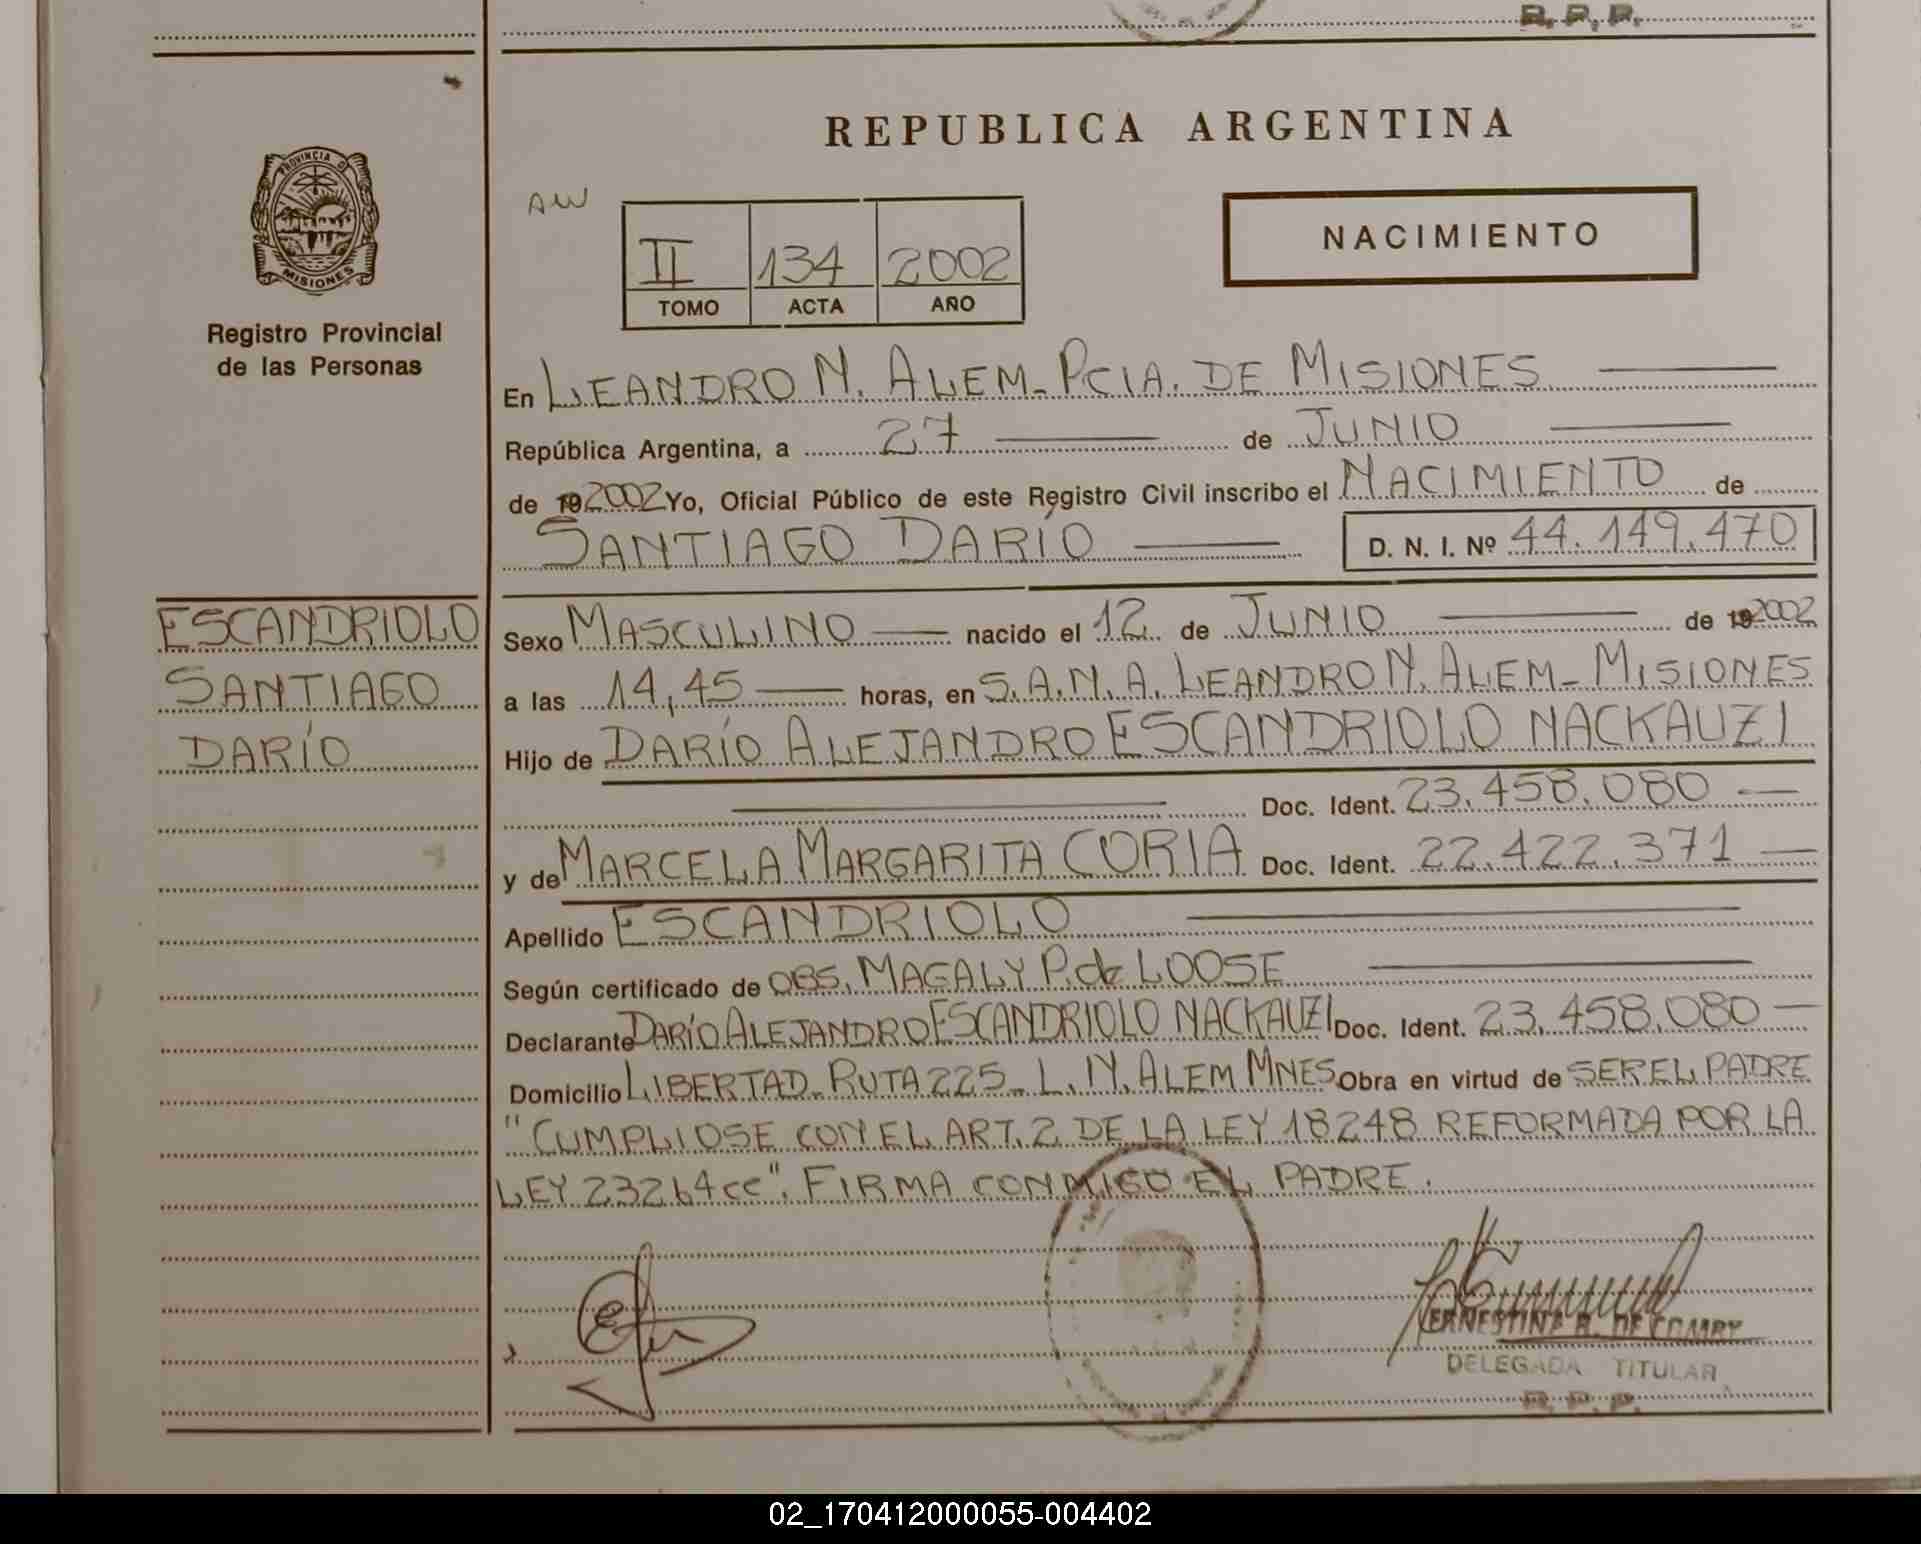 R. P. P.
REPUBLICA ARGENTINA
PROVINCIA D
MISIONES
AW
II 134 2002
TOMO ACTA AÑO
NACIMIENTO
Registro Provincial
de las Personas
En LEANDRO N. ALEM - PCIA. DE MISIONES
República Argentina, a 27 de JUNIO
de 192002 Yo, Oficial Público de este Registro Civil inscribo el NACIMIENTO de
SANTIAGO DARÍO D. N. I. Nº 44.149.470
ESCANDRIOLO
SANTIAGO
DARÍO
Sexo MASCULINO nacido el 12 de JUNIO de 192002
a las 14,45 horas, en S.A.M.A. LEANDRO N. ALEM - MISIONES
Hijo de DARÍO ALEJANDRO ESCANDRIOLO NACKAUZI
Doc. Ident. 23.458.080
y de MARCELA MARGARITA CORIA Doc. Ident. 22.422.371
Apellido ESCANDRIOLO
Según certificado de OBS. MAGALY P. de LOOSE
Declarante DARÍO ALEJANDRO ESCANDRIOLO NACKAUZI Doc. Ident. 23.458.080
Domicilio LIBERTAD - RUTA 225 - L. N. ALEM MNES Obra en virtud de SER EL PADRE
"CUMPLIOSE CON EL ART. 2 DE LA LEY 18248 REFORMADA POR LA
LEY 23264 cc". FIRMA CONMIGO EL PADRE.
ERNESTINA R. DE
DELEGADA TITULAR
R. P. P.
02_170412000055-004402